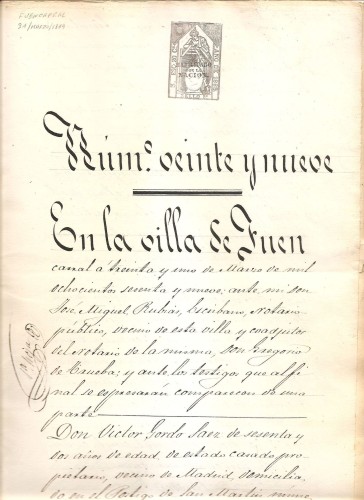 FUENCARRAL
31/MARZO/1869
HABILITADO
POR LA
NACION
Núm.º veinte y nueve
En la villa de Fuen
carral á treinta y uno de Marzo de mil
ochocientos sesenta y nueve: ante mi don
José Miguel Rubias, Escribano, Notario
público, vecino de esta villa y coadjutor
del Notario de la misma, Don Gregorio
de Trueba; y ante los testigos que al fi
nal se espresarán comparecen de una
parte
Don Victor Gordo Saez de sesenta y
dos años de edad, de estado casado pro
pietario, vecino de Madrid, domicilia
do en el de San Martin nume